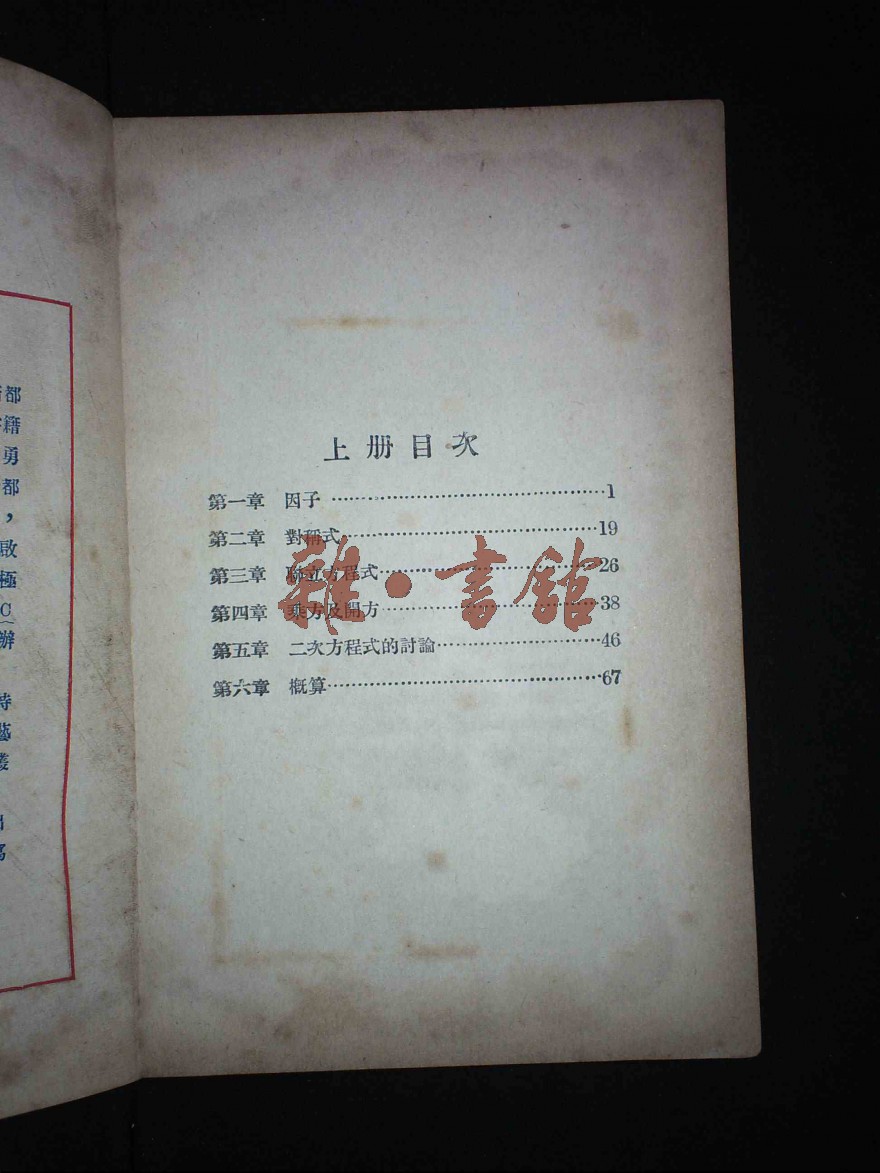 上册目次
第一章 因子……………………………………1
第二章 對稱式…………………………………19
第三章 聯立方程式……………………………26
第四章 乘方及開方……………………………38
第五章 二次方程式的討論……………………46
第六章 概算……………………………………67
雜·書館
都
籍
勇
都
，
啟
極
C
辦
時
藝
叢
出
寫